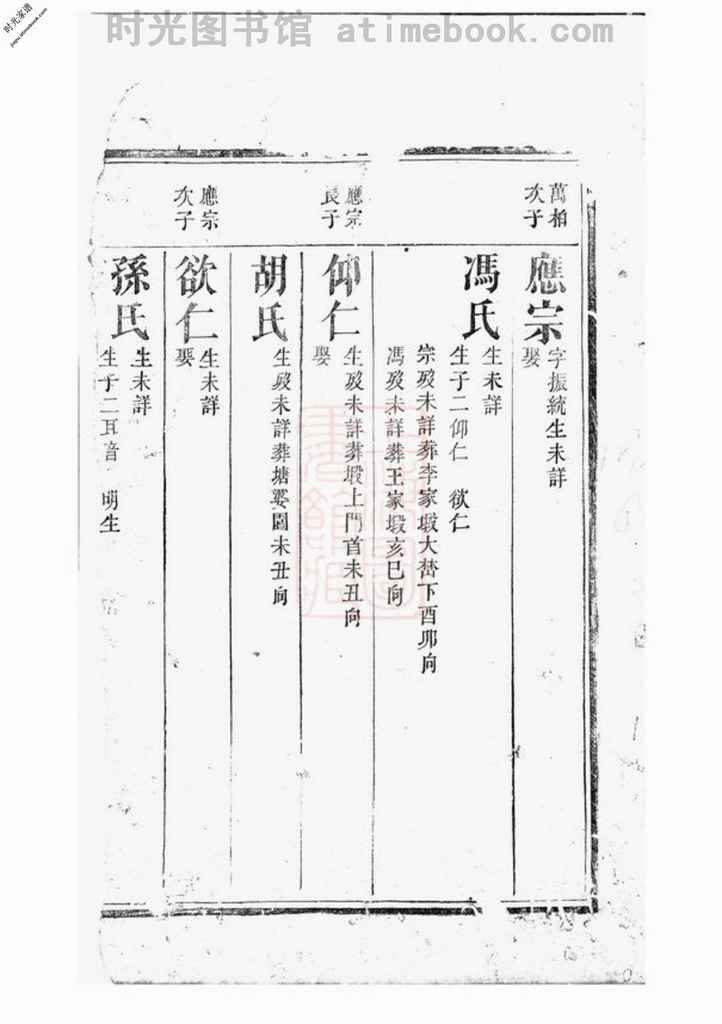 时光图书馆 atimebook.com
时光家谱
jiapu.atimebook.com
萬柏
次子
應宗
字振統生未詳
娶
馮氏
生未詳
生子二仰仁 欲仁
宗歿未詳葬李家塅大塝下酉卯向
馮歿未詳葬王家塅亥巳向
應宗
長子
仰仁
生歿未詳葬塅上門首未丑向
娶
胡氏
生歿未詳葬塘婆園未丑向
應宗
次子
欲仁
生未詳
娶
孫氏
生未詳
生子二耳音 明生